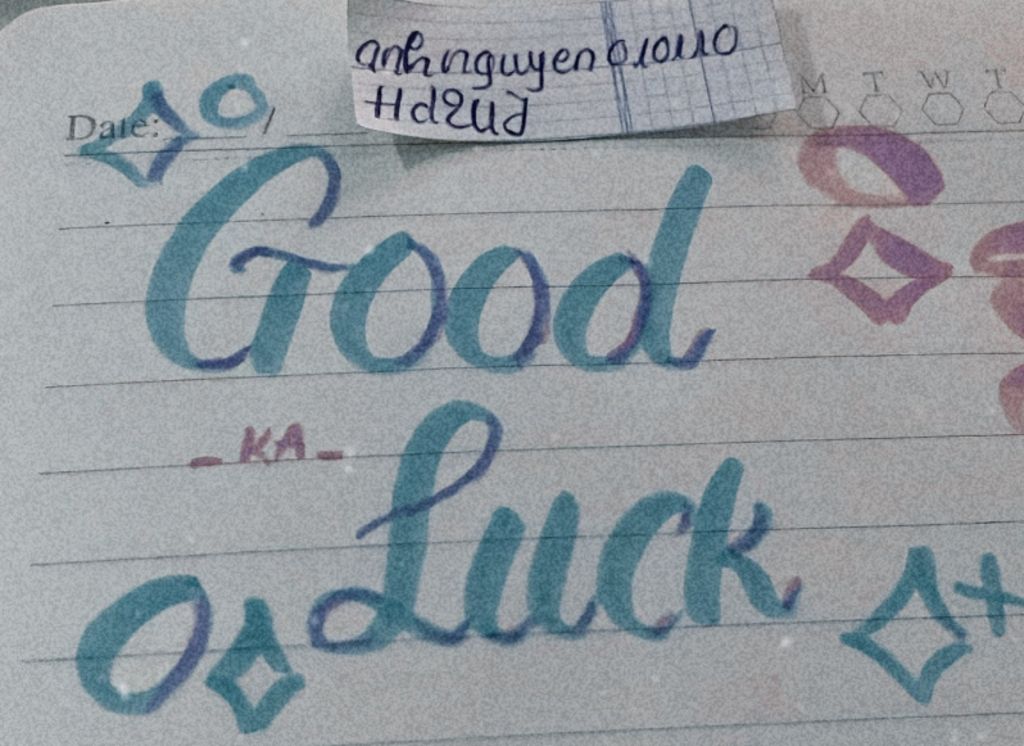 anhnguyen010110
Hd2UJ
M T W T
Date: /
Good
- KA -
Luck